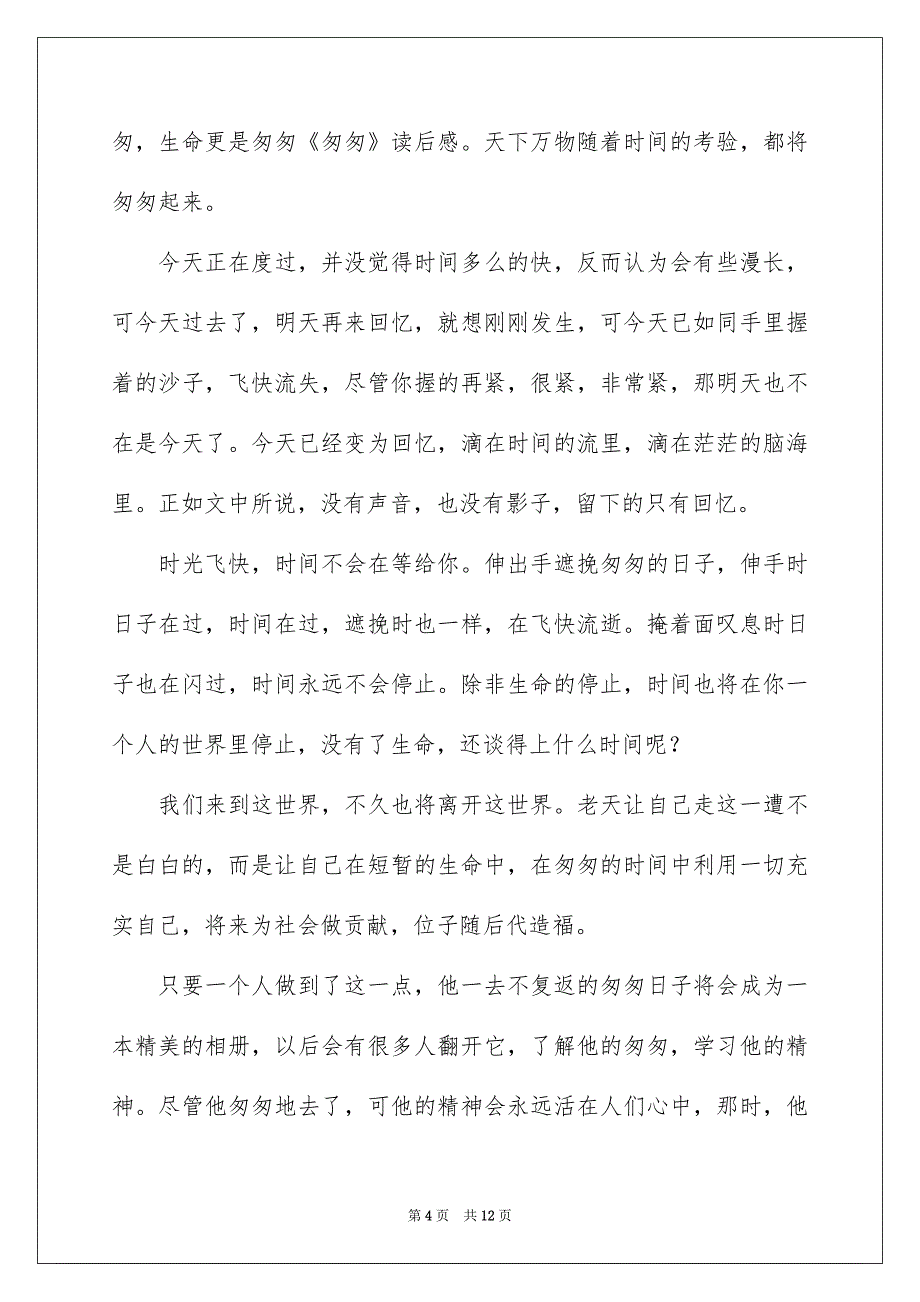 匆，生命更是匆匆《匆匆》读后感。天下万物随着时间的考验，都将
匆匆起来。
今天正在度过，并没觉得时间多么的快，反而认为会有些漫长，
可今天过去了，明天再来回忆，就想刚刚发生，可今天已如同手里握
着的沙子，飞快流失，尽管你握的再紧，很紧，非常紧，那明天也不
在是今天了。今天已经变为回忆，滴在时间的流里，滴在茫茫的脑海
里。正如文中所说，没有声音，也没有影子，留下的只有回忆。
时光飞快，时间不会在等给你。伸出手遮挽匆匆的日子，伸手时
日子在过，时间在过，遮挽时也一样，在飞快流逝。掩着面叹息时日
子也在闪过，时间永远不会停止。除非生命的停止，时间也将在你一
个人的世界里停止，没有了生命，还谈得上什么时间呢？
我们来到这世界，不久也将离开这世界。老天让自己走这一遭不
是白白的，而是让自己在短暂的生命中，在匆匆的时间中利用一切充
实自己，将来为社会做贡献，位子随后代造福。
只要一个人做到了这一点，他一去不复返的匆匆日子将会成为一
本精美的相册，以后会有很多人翻开它，了解他的匆匆，学习他的精
神。尽管他匆匆地去了，可他的精神会永远活在人们心中，那时，他
第 4 页 共 12 页